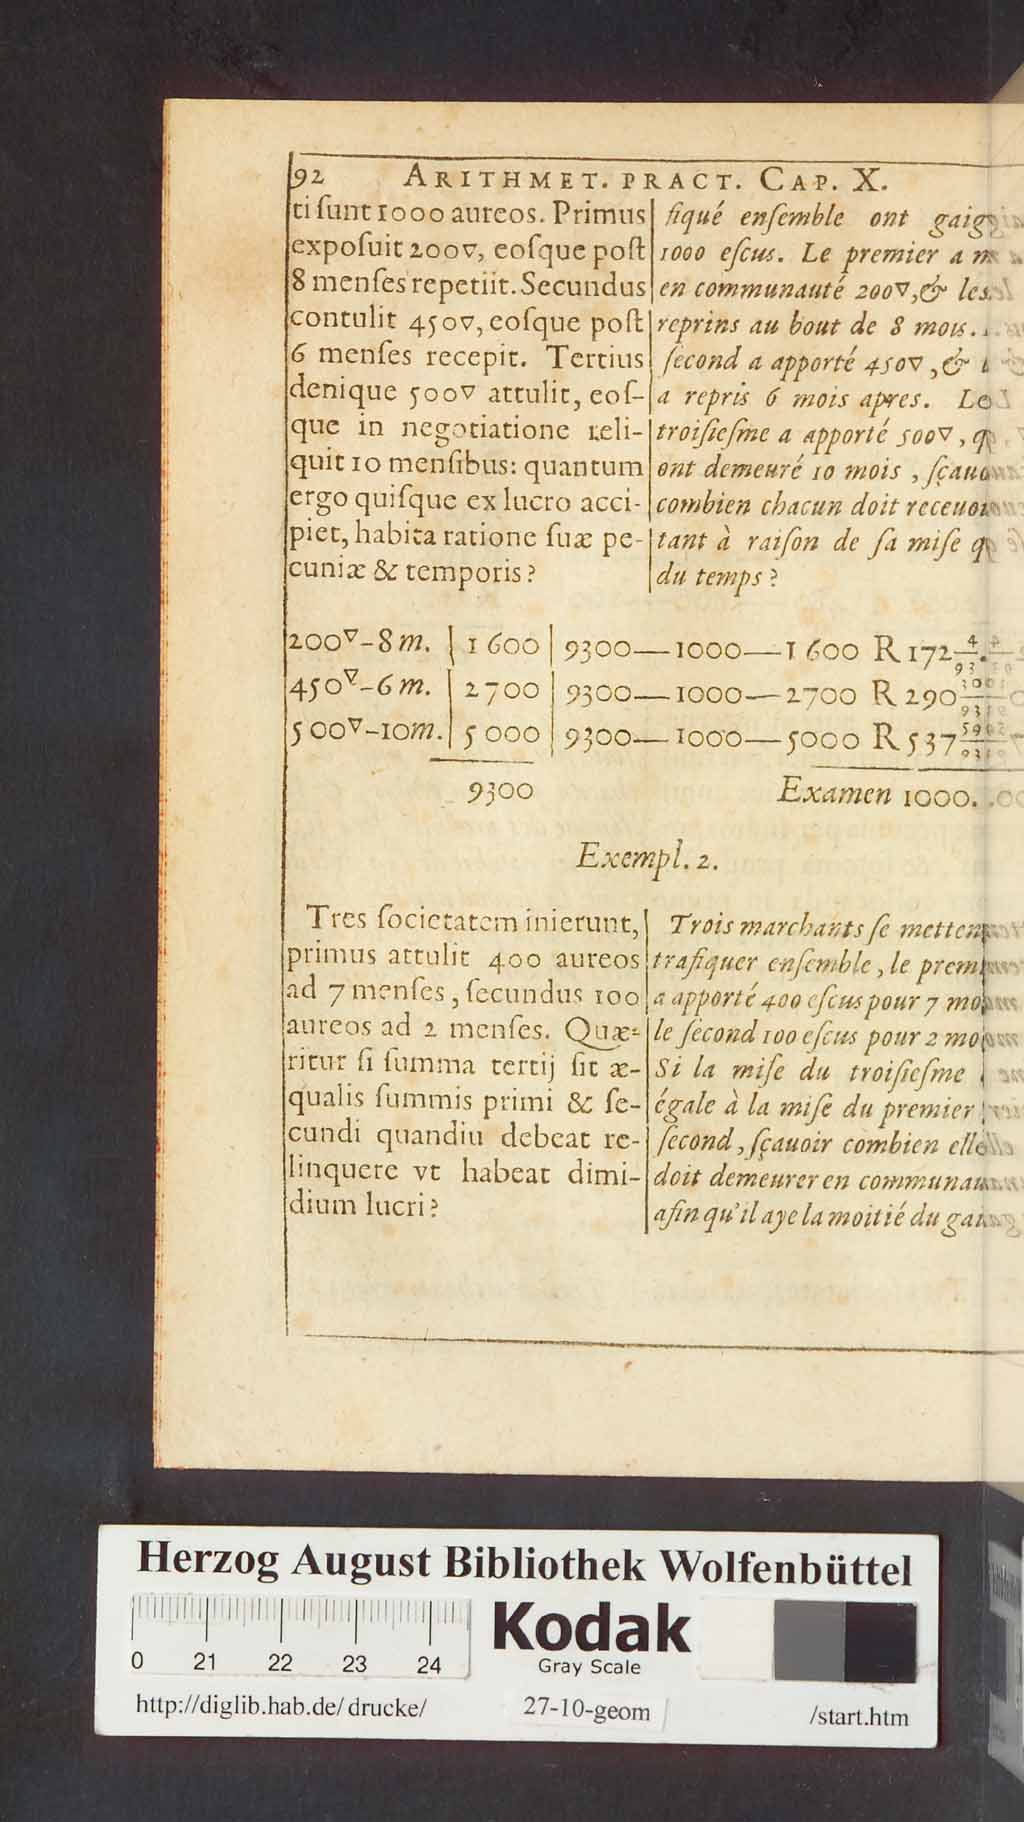 92 ARITHMET. PRACT. CAP. X.
ti ſunt 1000 aureos. Primus
expoſuit 200▽, eoſque poſt
8 menſes repetiit. Secundus
contulit 450▽, eoſque poſt
6 menſes recepit. Tertius
denique 500▽ attulit, eoſ-
que in negotiatione reli-
quit 10 menſibus: quantum
ergo quiſque ex lucro acci-
piet, habita ratione ſuæ pe-
cuniæ & temporis?
ſiqué enſemble ont
1000 eſcus. Le premier a
en communauté 200▽, & les
reprins au bout de 8 mois.
ſecond a apporté 450▽, &
a repris 6 mois apres.
troiſieſme a apporté 500▽,
ont demeuré 10 mois,
combien chacun doit
tant à raiſon de ſa miſe
du temps?
200▽–8 m. | 1600 | 9300—1000—1600 R 172
450▽–6 m. | 2700 | 9300—1000—2700 R 290
500▽–10 m. | 5000 | 9300—1000—5000 R 537
9300 Examen 1000.
Exempl. 2.
Tres ſocietatem inierunt,
primus attulit 400 aureos
ad 7 menſes, ſecundus 100
aureos ad 2 menſes. Quæ-
ritur ſi ſumma tertij ſit æ-
qualis ſummis primi & ſe-
cundi quandiu debeat re-
linquere vt habeat dimi-
dium lucri?
Trois marchants ſe
trafiquer enſemble, le
a apporté 400 eſcus pour 7
le ſecond 100 eſcus pour 2
Si la miſe du troiſieſme
égale à la miſe du premier
ſecond, ſçauoir combien
doit demeurer en
afin qu'il aye la moitié du
Herzog August Bibliothek Wolfenbüttel
0 21 22 23 24
Kodak
Gray Scale
http://diglib.hab.de/drucke/ 27-10-geom /start.htm